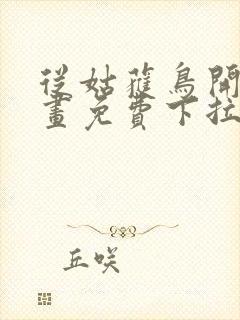 從姑蓷鳥開
畫免費下拉
丘咲